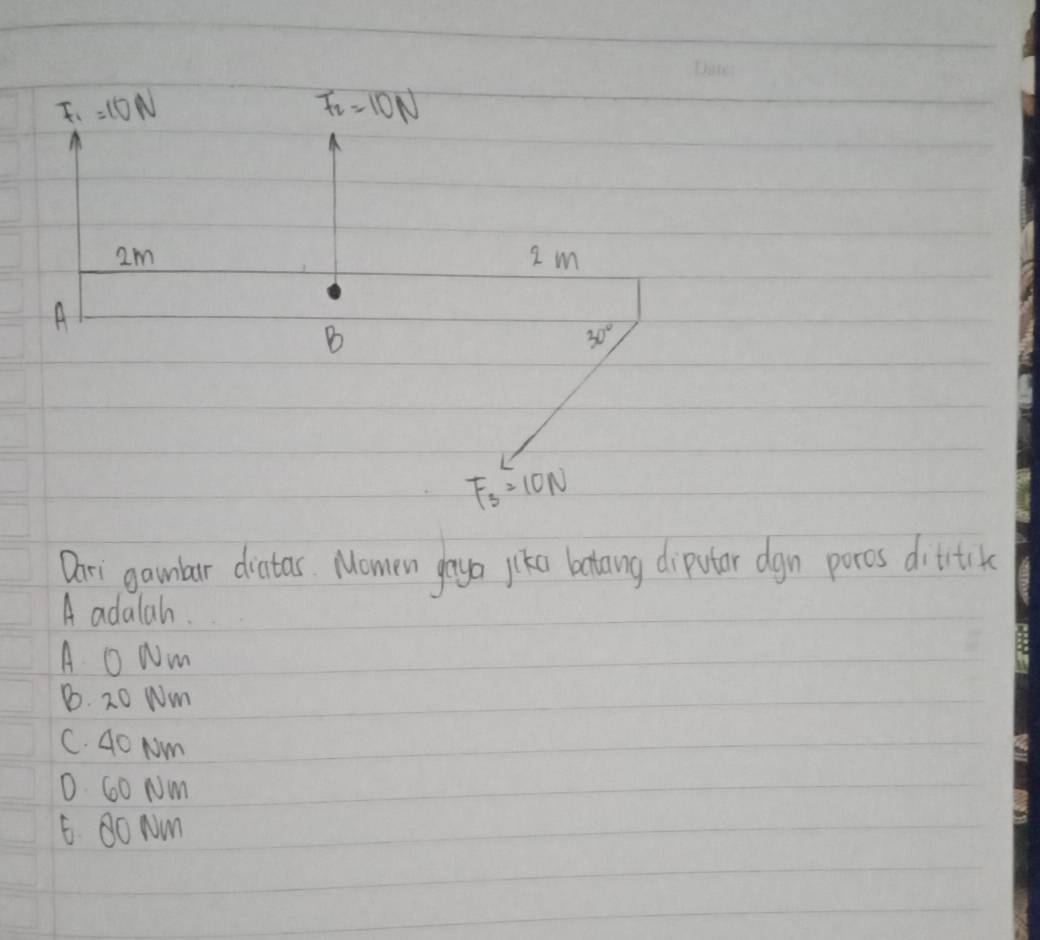 Date:
F₁ = 10 N
F₂ = 10 N
2m
2 m
A
B
30°
F₃ = 10 N
Dari gambar diatas. Momen gaya jika batang diputar dgn poros dititik
A adalah.
A. 0 Nm
B. 20 Nm
C. 40 Nm
D. 60 Nm
E. 80 Nm